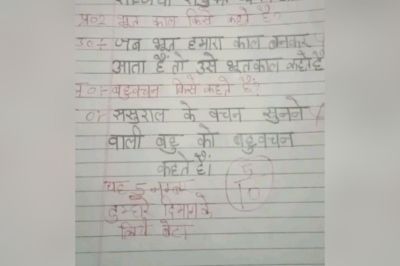 प्र०२ भूत काल किसे कहते है?
उ०:- जब भूत हमारा काल बनकर
आता है तो उसे भूतकाल कहते है
प्र०:- बहुवचन किसे कहते है?
उ०:- ससुराल के बचन सुनने
वाली बहु को बहुवचन
कहते है।
यह 5 नम्बर
तुम्हारे दिमाग के
लिये बेटा
5
10